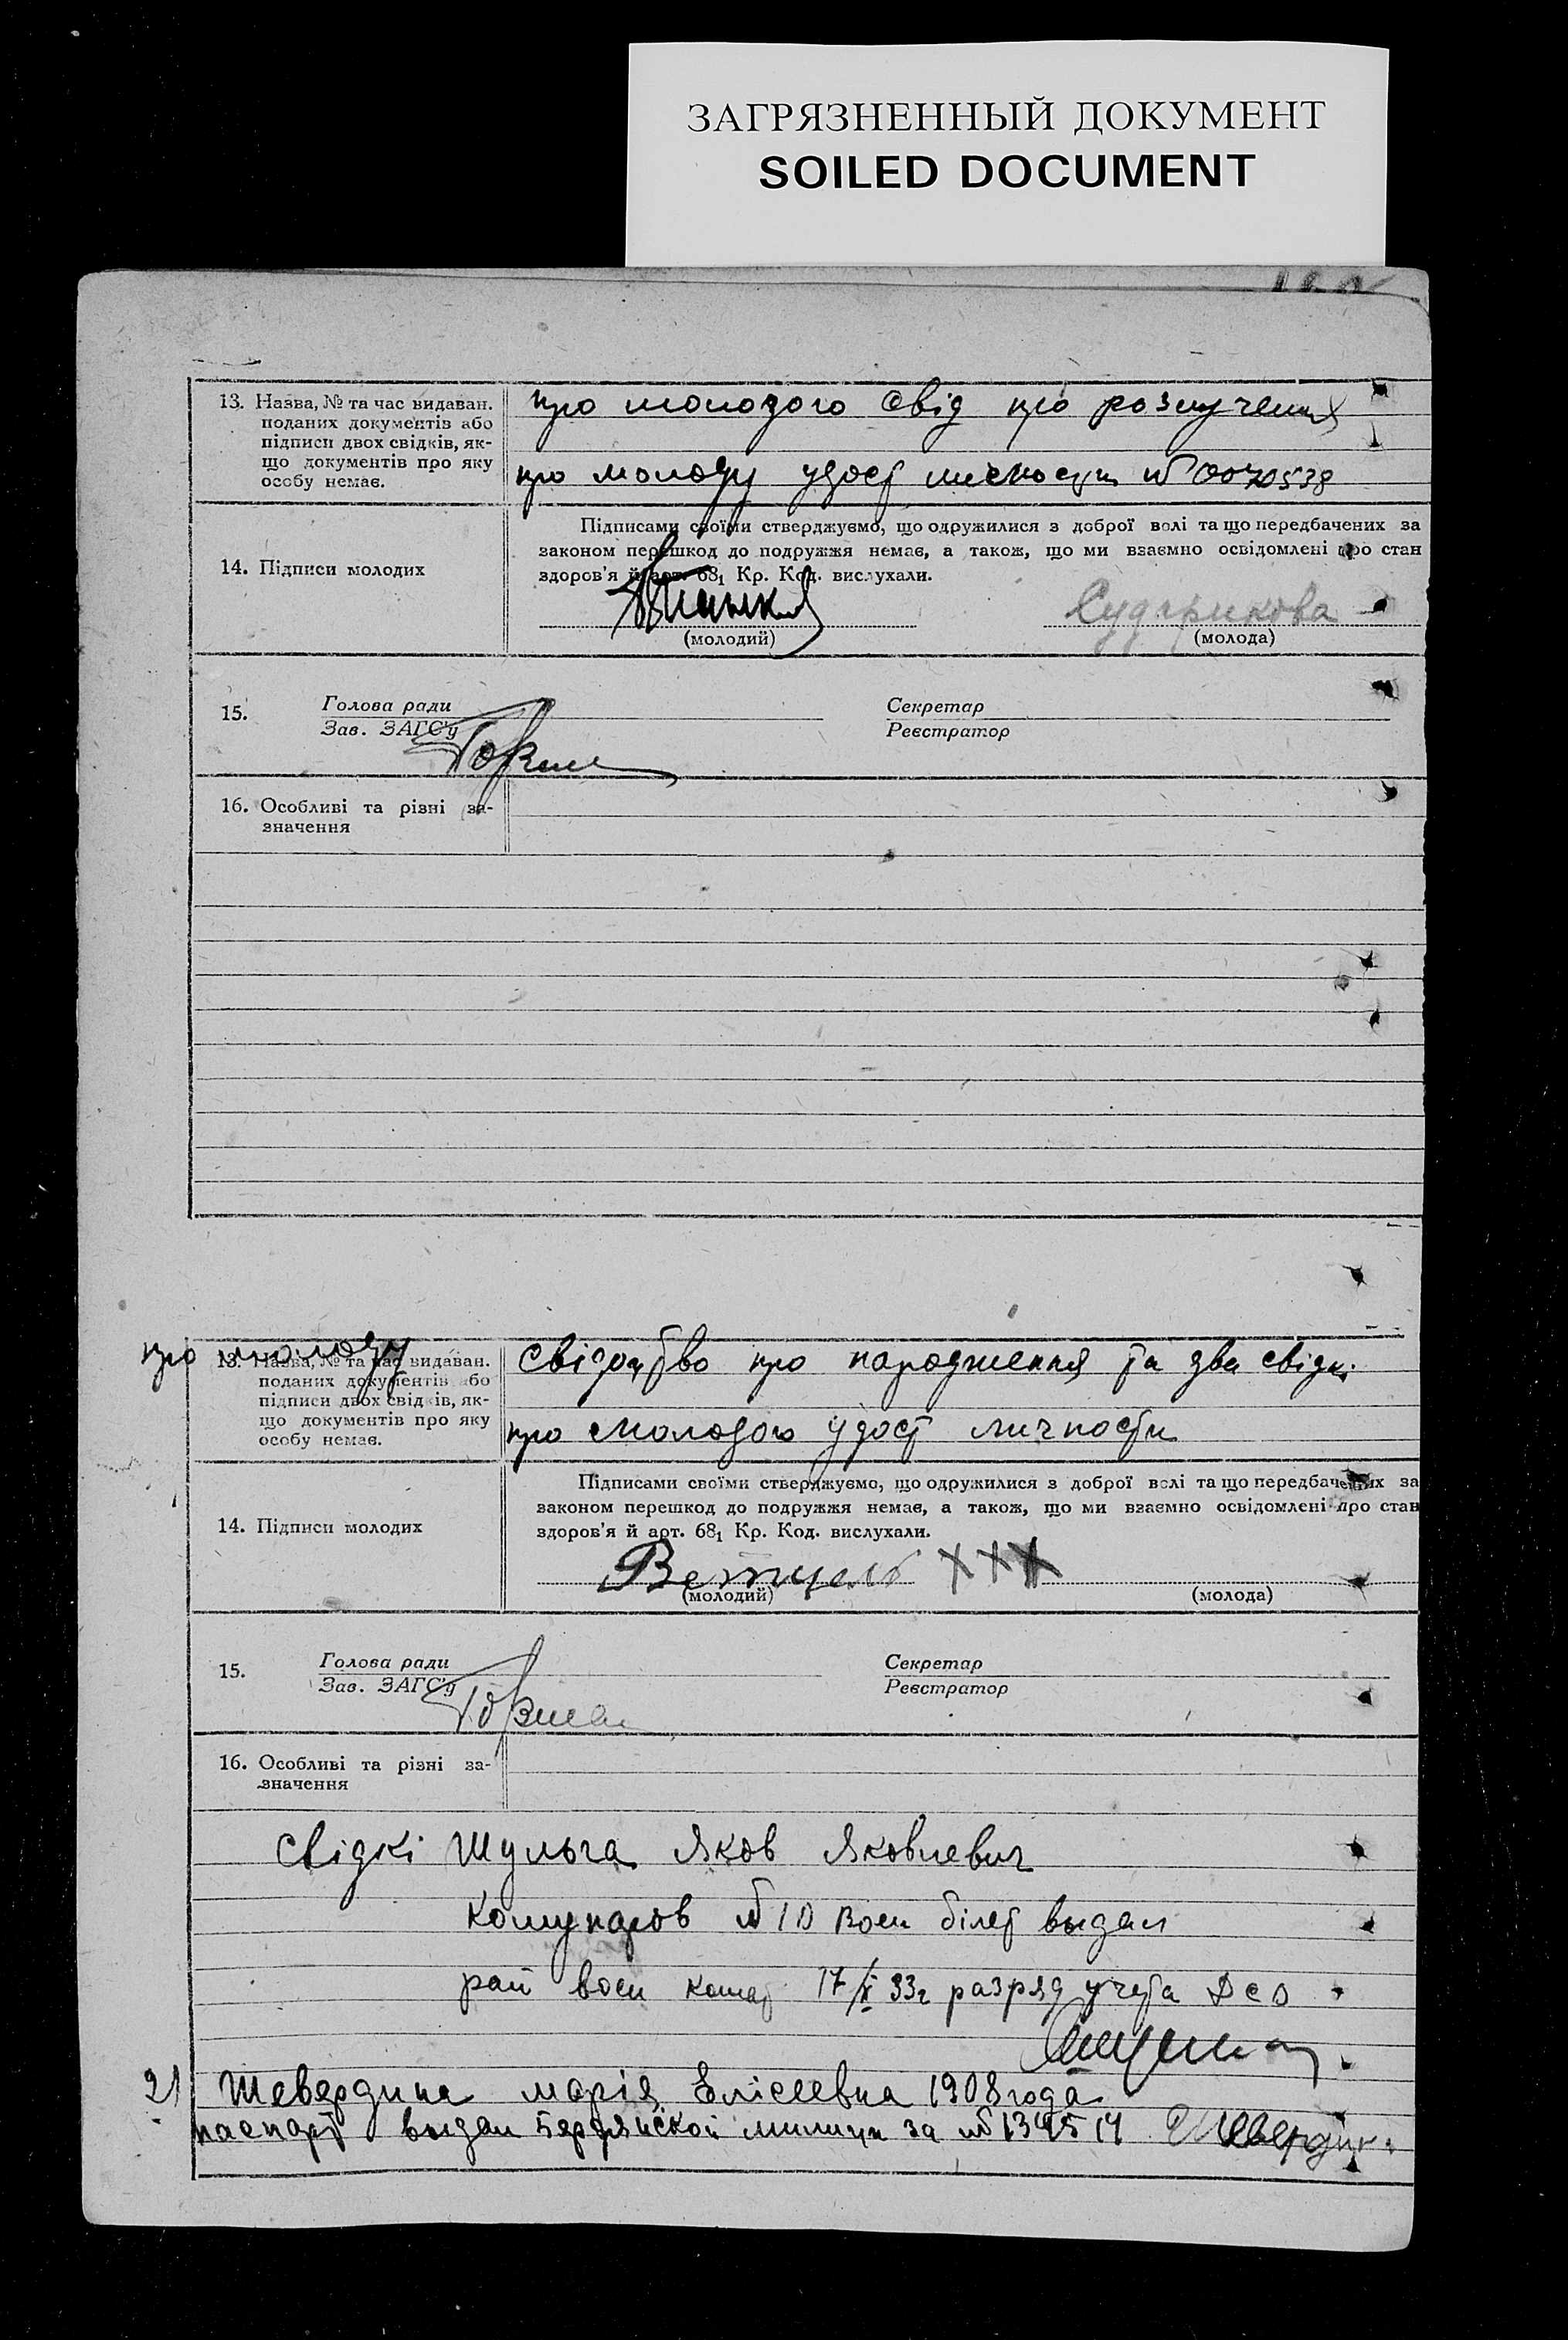 ЗАГРЯЗНЕННЫЙ ДОКУМЕНТ
SOILED DOCUMENT
13. Назва, № та час видаван.
поданих документів або
підписи двох свідків, як-
що документів про яку
особу немає.
про молодого свід про розлучення
про молоду удост личности № 0070538
14. Підписи молодих
Підписами своїми стверджуємо, що одружилися з доброї волі та що передбачених за
законом перешкод до подружжя немає, а також, що ми взаємно освідомлені про стан
здоров'я й арт. 68₁ Кр. Код. вислухали.
Сударикова
(молодий) (молода)
15. Голова ради Секретар
Зав. ЗАГС'у Реєстратор
16. Особливі та різні за-
значення
про молоду
13. Назва, № та час видаван.
поданих документів або
підписи двох свідків, як-
що документів про яку
особу немає.
свідоцтво про народження та два свідк.
про молодого удост личности
14. Підписи молодих
Підписами своїми стверджуємо, що одружилися з доброї волі та що передбачених за
законом перешкод до подружжя немає, а також, що ми взаємно освідомлені про стан
здоров'я й арт. 68₁ Кр. Код. вислухали.
Ветцель ХХХ
(молодий) (молода)
15. Голова ради Секретар
Зав. ЗАГС'у Реєстратор
16. Особливі та різні за-
значення
свідкі Шульга Яков Яковлевич
Комунаров № 10 воен білет выдан
рай воен комат 17/X 33г разряд учета
2) Шевердина марія Елісеевна 1908 года
паспорт выдан Бердянской милиции за № 134514 Шевердин